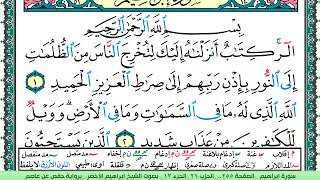 بِسْمِ ٱللَّهِ ٱلرَّحْمَٰنِ ٱلرَّحِيمِ
الٓر كِتَٰبٌ أَنزَلْنَٰهُ إِلَيْكَ لِتُخْرِجَ ٱلنَّاسَ مِنَ ٱلظُّلُمَٰتِ
إِلَى ٱلنُّورِ بِإِذْنِ رَبِّهِمْ إِلَىٰ صِرَٰطِ ٱلْعَزِيزِ ٱلْحَمِيدِ ١
ٱللَّهِ ٱلَّذِى لَهُۥ مَا فِى ٱلسَّمَٰوَٰتِ وَمَا فِى ٱلْأَرْضِ وَوَيْلٌ
لِّلْكَٰفِرِينَ مِنْ عَذَابٍ شَدِيدٍ ٢ ٱلَّذِينَ يَسْتَحِبُّونَ
سورة إبراهيم الصفحة ٢٥٥ الحزب ٢٦ الجزء ١٣ بصوت الشيخ إبراهيم الأخضر برواية حفص عن عاصم